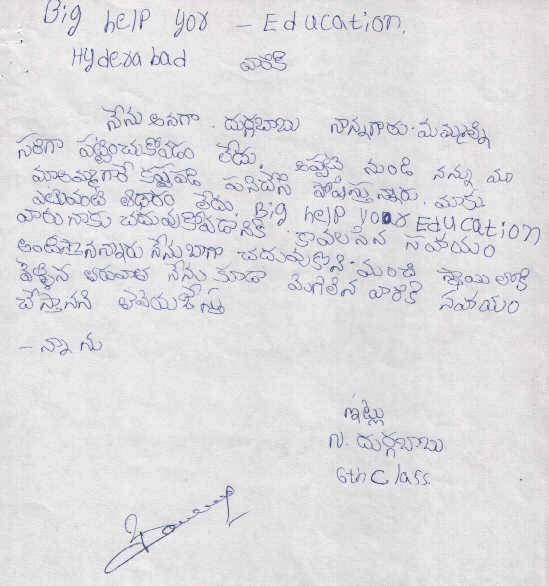 Big help yor - Education.
Hyderabad వారికి
నేను అనగా . దుర్గబాబు నాన్నగారు. మమ్మల్ని
సరిగా పట్టించుకోవడం లేదు. అప్పటి నుండి నన్ను మా
మా అమ్మగారే కష్టపడి పనిచేసి పోషిస్తున్నారు. మాకు
ఎటువంటి ఆధారం లేదు. Big help your Education
వారు నాకు చదువుకోవడానికి కావలసిన సహాయం
అందిస్తానన్నారు నేను బాగా చదువుకొని. మంచి స్థాయి లోకి
వెళ్ళిన తరువాత నేను కూడా మిగిలిన వారికి సహాయం
చేస్తానని తెలియచేస్తు
- న్నా ను
ఇట్లు
N. దుర్గబాబు
6th Class.